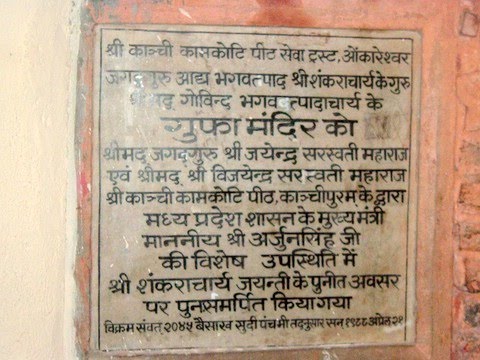 श्री काञ्ची कामकोटि पीठ सेवा ट्रस्ट, ओंकारेश्वर
जगद्गुरु आद्य भगवत्पाद श्रीशंकराचार्य के गुरु
श्रीमद् गोविन्द भगवत्पादाचार्य के
गुफा मंदिर को
श्रीमद् जगद्गुरु श्री जयेन्द्र सरस्वती महाराज
एवं श्रीमद् श्री विजयेन्द्र सरस्वती महाराज
श्री काञ्ची कामकोटि पीठ, काञ्चीपुरम के द्वारा
मध्य प्रदेश शासन के मुख्य मंत्री
माननीय श्री अर्जुनसिंह जी
की विशेष उपस्थिति में
श्री शंकराचार्य जयन्ती के पुनीत अवसर
पर पुनःसमर्पित किया गया
विक्रम संवत् २०४५ बैसाख सुदी पंचमी तदनुसार सन १९८८ अप्रेल २१